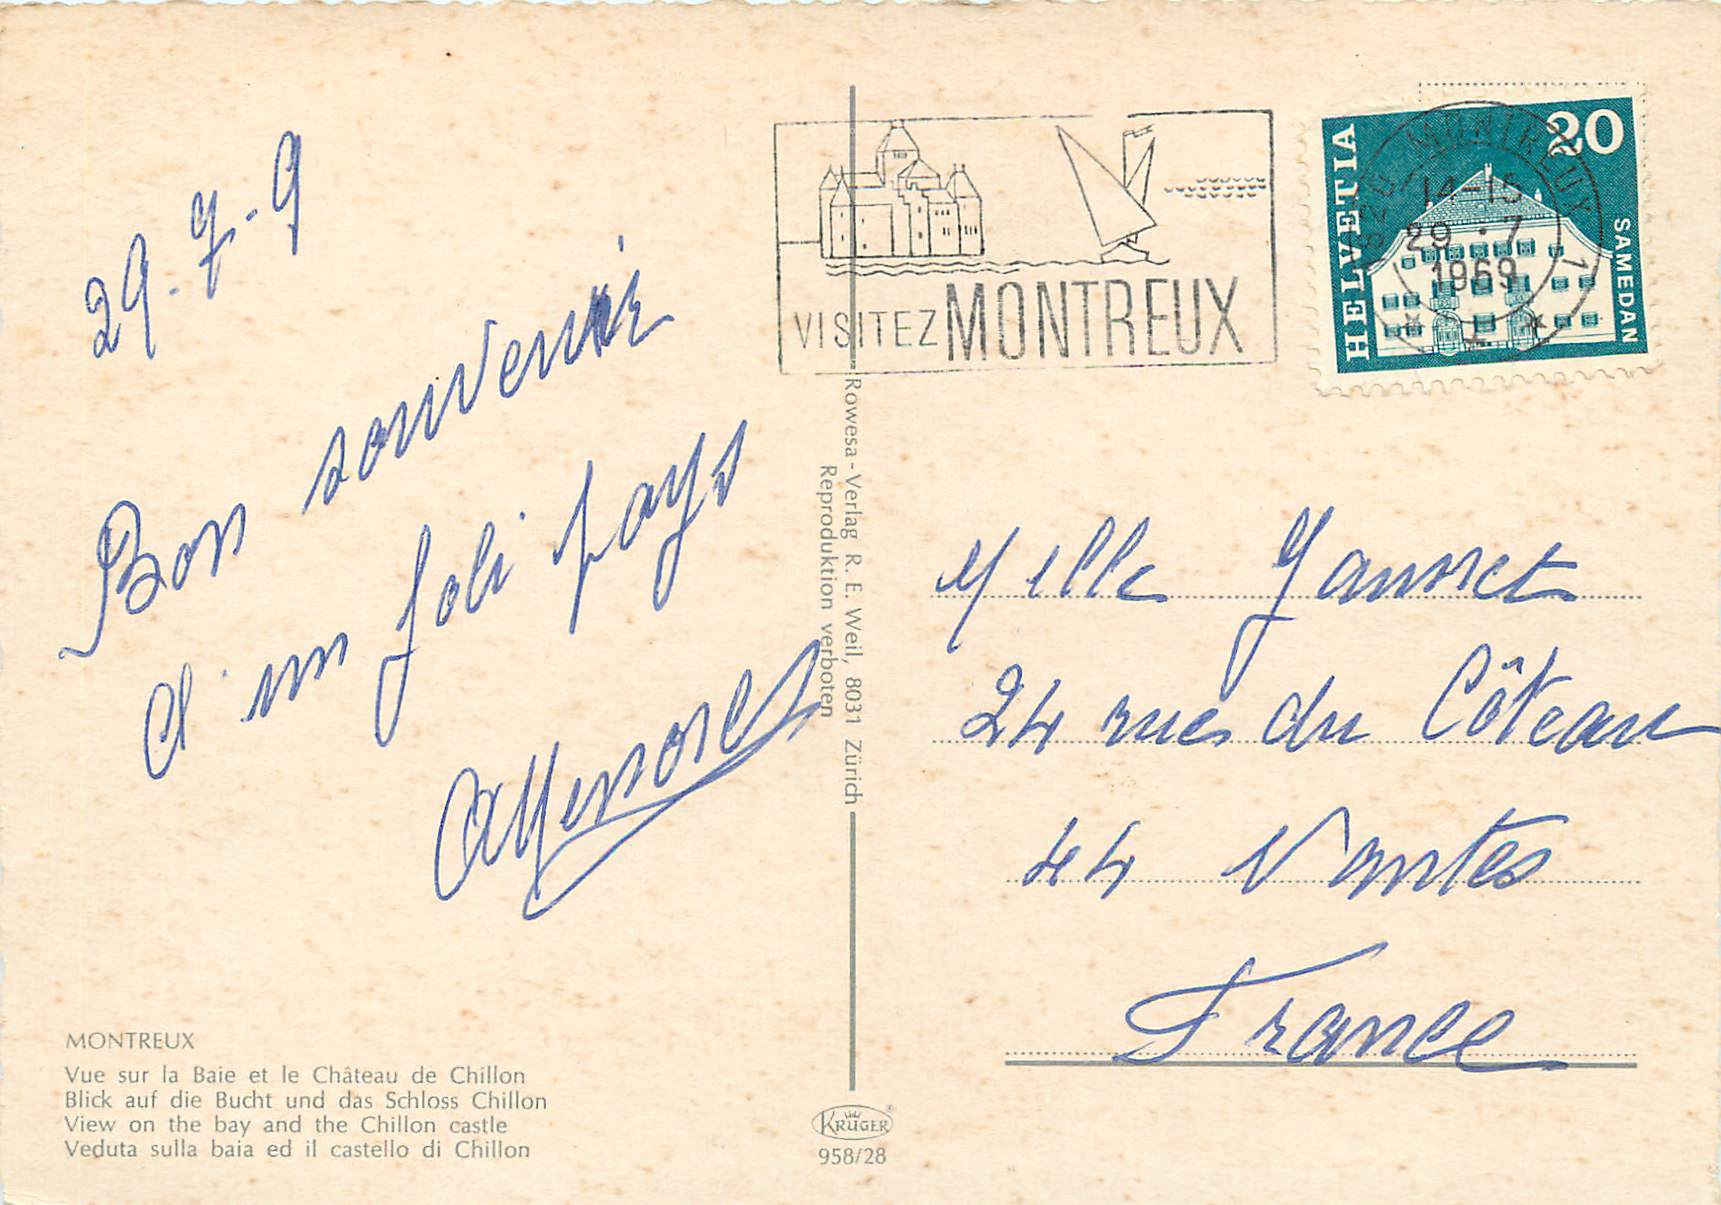 29.7-9
Bon souvenir
d'un joli pays
MONTREUX
Vue sur la Baie et le Château de Chillon
Blick auf die Bucht und das Schloss Chillon
View on the bay and the Chillon castle
Veduta sulla baia ed il castello di Chillon
Rowesa-Verlag R. E. Weil, 8031 Zürich
Reproduktion verboten
KRÜGER
958/28
VISITEZ MONTREUX
HELVETIA
20
SAMEDAN
1820 MONTREUX 1
14-15
29.7
1969
Melle
24 rue du Côteau
44 Nantes
France